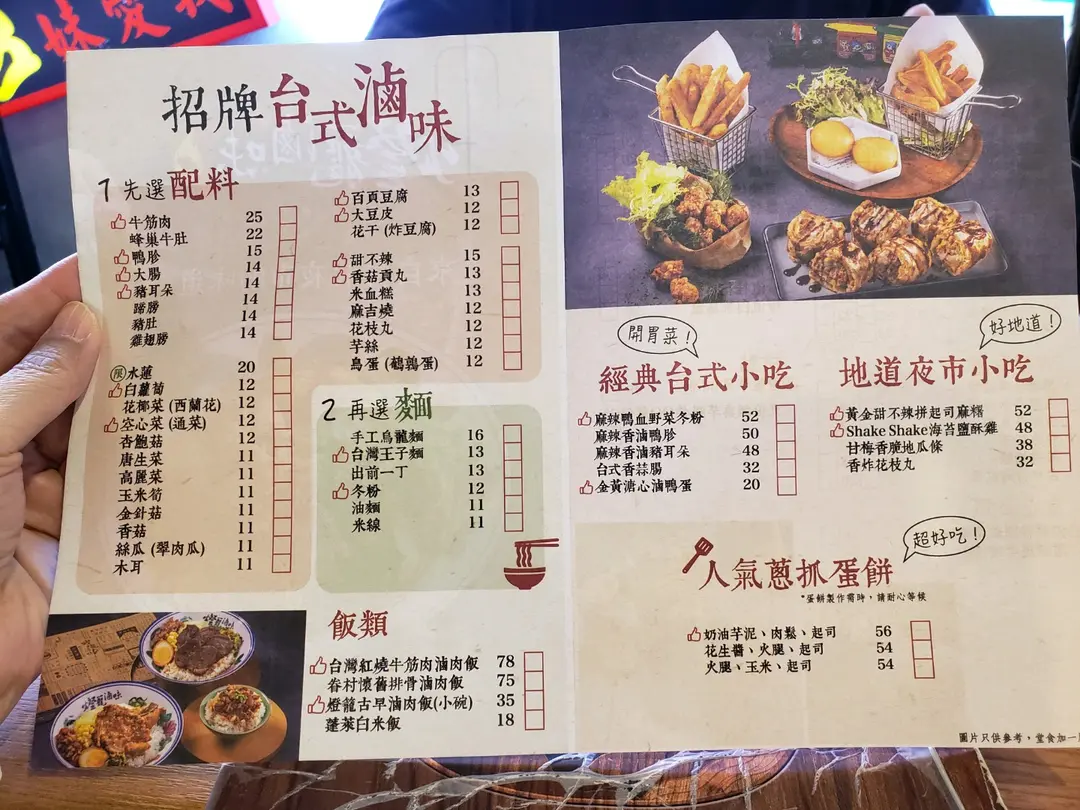 妹愛我
招牌台式滷味
1 先選配料
牛筋肉 25
蜂巢牛肚 22
鴨胗 15
大腸 14
豬耳朵 14
蹄膀 14
豬肚 14
雞翅膀 14
限 水蓮 20
白蘿蔔 12
花椰菜 (西蘭花) 12
空心菜 (通菜) 12
杏鮑菇 12
唐生菜 11
高麗菜 11
玉米筍 11
金針菇 11
香菇 11
絲瓜 (翠肉瓜) 11
木耳 11
百頁豆腐 13
大豆皮 12
花干 (炸豆腐) 12
甜不辣 15
香菇貢丸 13
米血糕 13
麻吉燒 12
花枝丸 12
芋絲 12
鳥蛋 (鵪鶉蛋) 12
2 再選麵
手工烏龍麵 16
台灣王子麵 13
出前一丁 13
冬粉 12
油麵 11
米線 11
飯類
台灣紅燒牛筋肉滷肉飯 78
眷村懷舊排骨滷肉飯 75
燈龍古早滷肉飯(小碗) 35
蓬萊白米飯 18
開胃菜！
經典台式小吃
麻辣鴨血野菜冬粉 52
麻辣香滷鴨胗 50
麻辣香滷豬耳朵 48
台式香蒜腸 32
金黃溏心滷鴨蛋 20
好地道！
地道夜市小吃
黃金甜不辣拼起司麻糬 52
Shake Shake海苔鹽酥雞 48
甘梅香脆地瓜條 38
香炸花枝丸 32
超好吃！
人氣蔥抓蛋餅
*蛋餅製作需時，請耐心等候
奶油芋泥、肉鬆、起司 56
花生醬、火腿、起司 54
火腿、玉米、起司 54
圖片只供參考，堂食加一